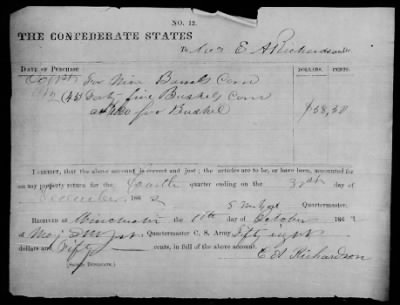 NO. 12.
THE CONFEDERATE STATES
To Mrs E A Richardson Dr.
DATE OF PURCHASE. DOLLARS. CENTS.
For Nine Barrels Corn
(45) Forty five Bushels Corn
for Bushel $58,50
I CERTIFY, that the above account is correct and just; the articles are to be, or have been, accounted for
on my property return for the Fourth quarter ending on the 31st day of
December 186
Quartermaster.
RECEIVED at Winchester the day of October 186
of Maj Quartermaster C. S. Army Fifty eight
dollars and Fifty cents, in full of the above account.
E A Richardson
(SIGNED DUPLICATE.)